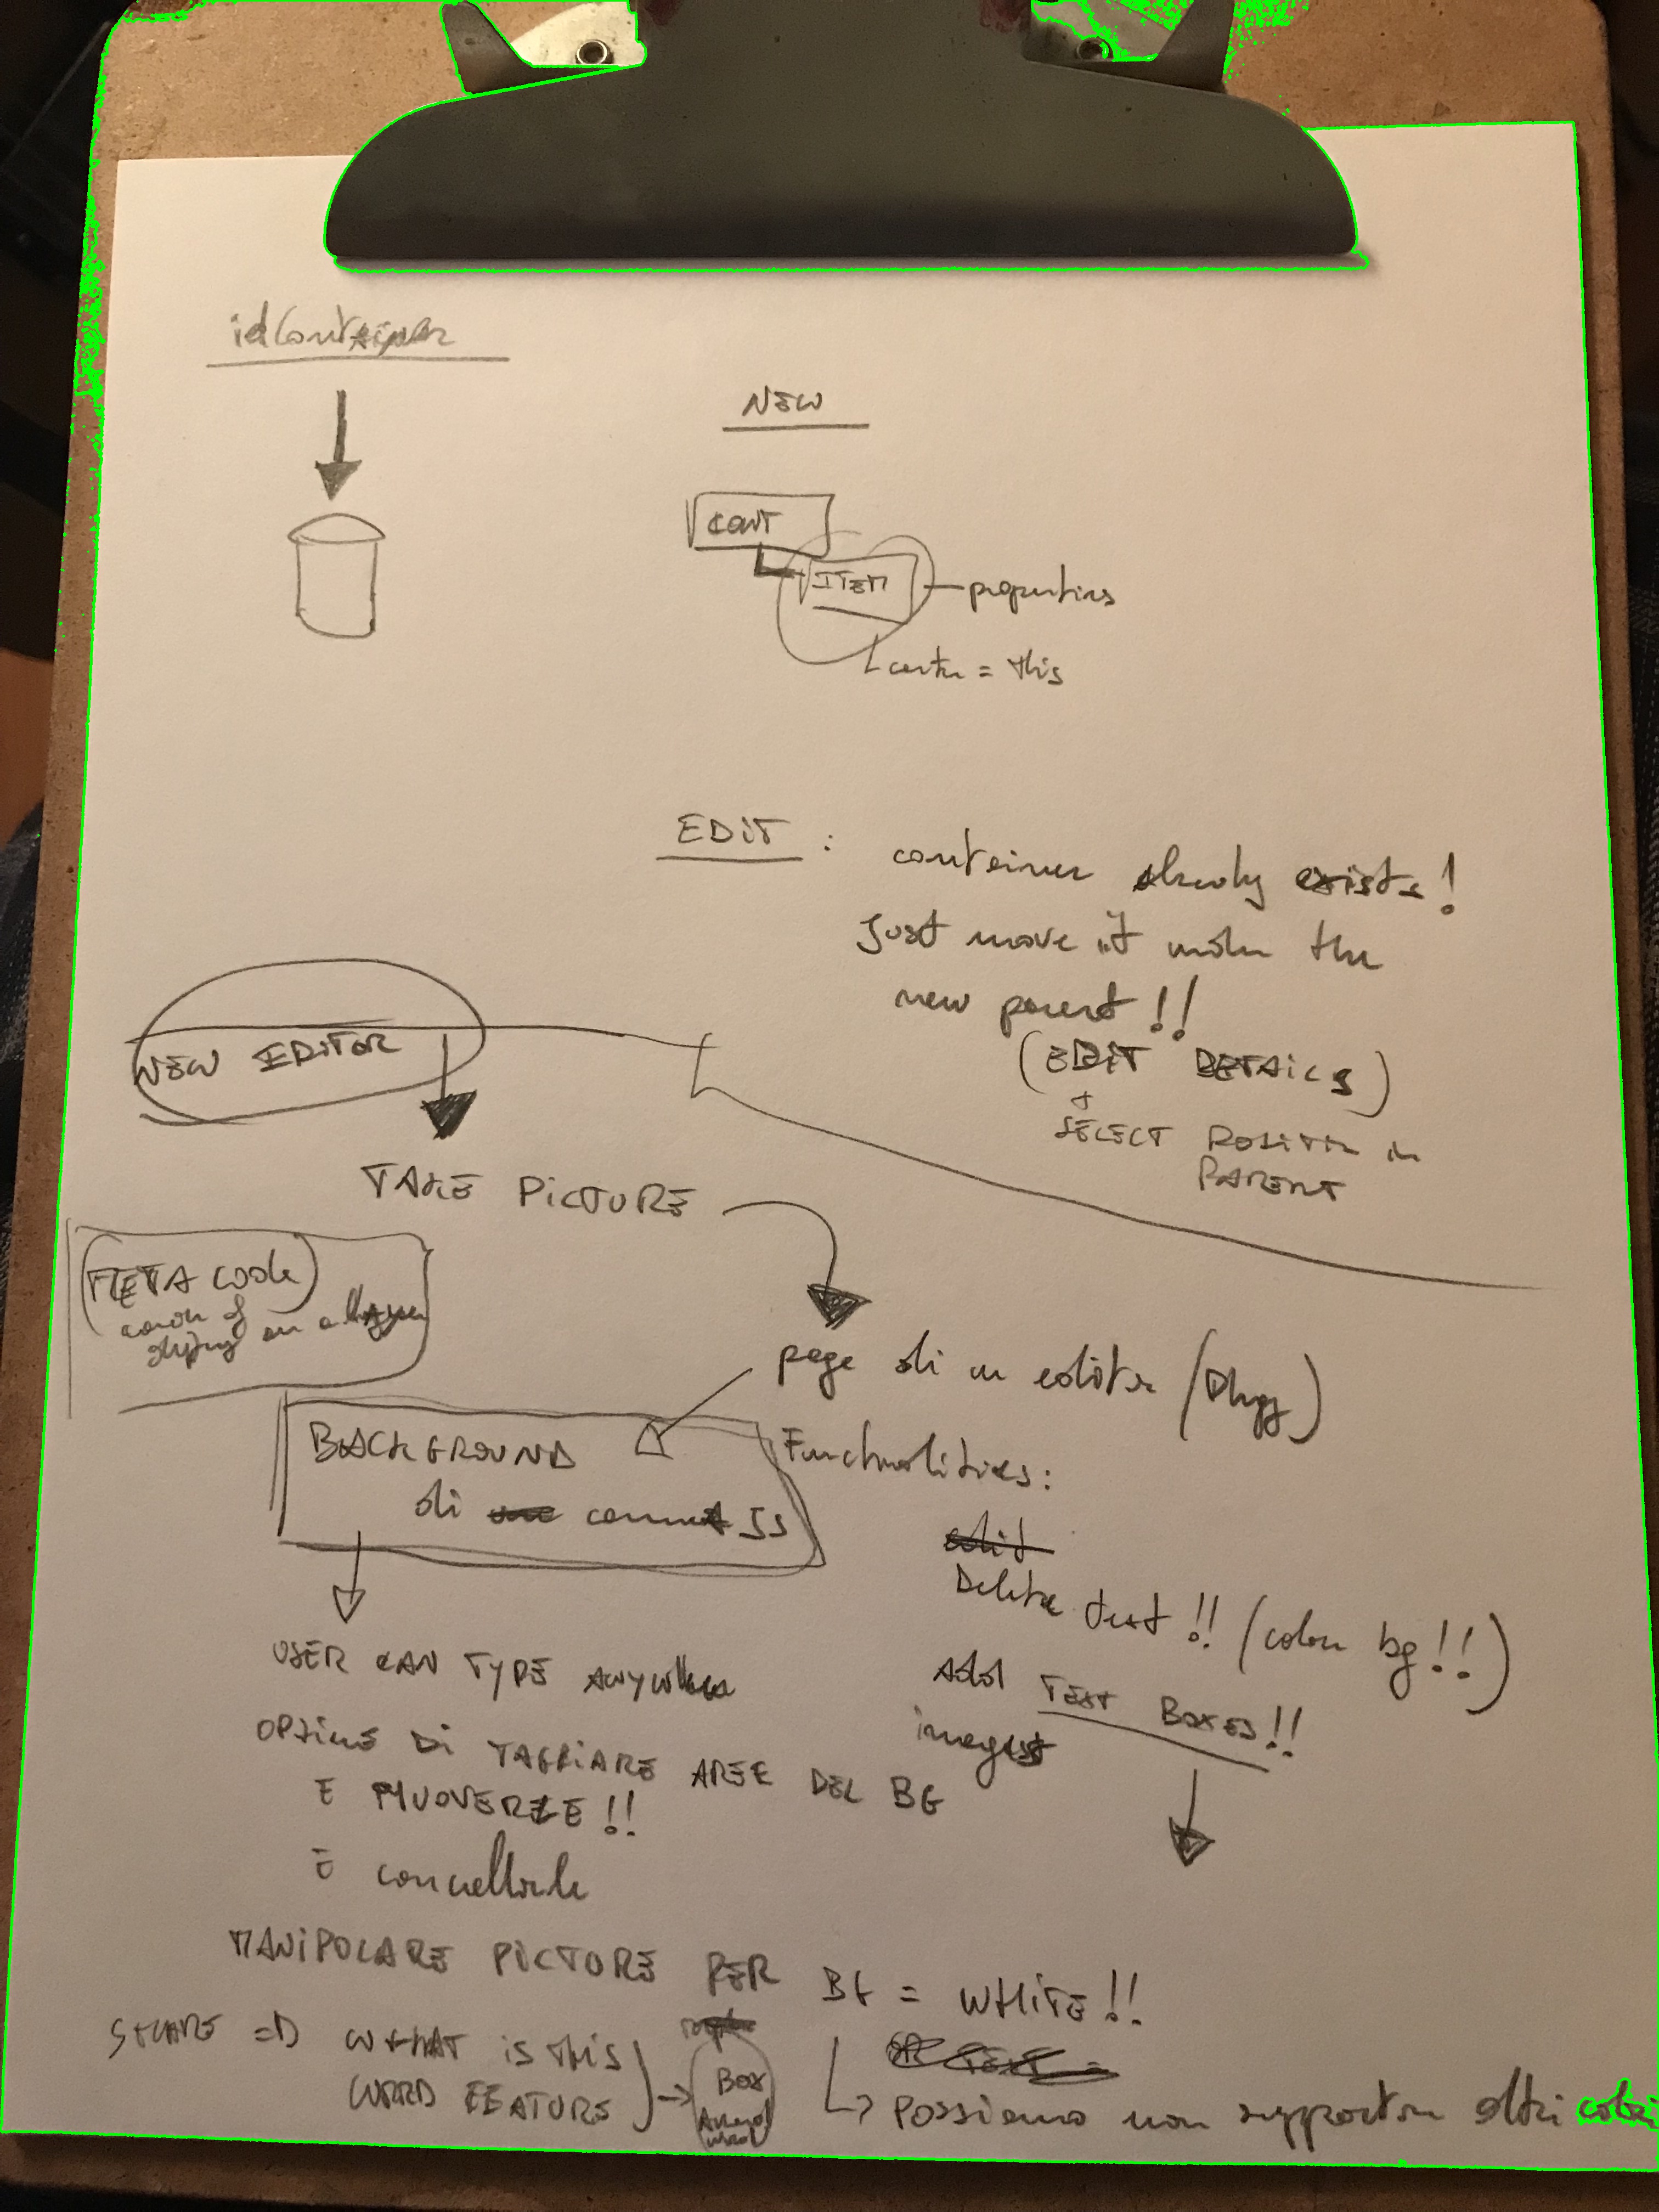 idContainer
NEW
CONT
ITEM
properties
= this
EDIT :
container already exists!
Just move it under the
new parent!!
(EDIT DETAILS)
+
SELECT POSITION in
PARENT
NEW EDITOR
TAKE PICTURE
(META code)
on
page di un editor
BACKGROUND
di commit JS
Functionalities:
edit
Delete text!! (color bg!!)
Add TEXT BOXES!!
images
USER CAN TYPE ANYWHERE
OPTIONS DI TAGLIARE AREE DEL BG
E MUOVERLE!!
E cancellarle
MANIPOLARE PICTURE PER BG = WHITE!!
SHARE => WHAT IS THIS
WORD FEATURE
Box
Around
word
Possiamo non supportare altri colori